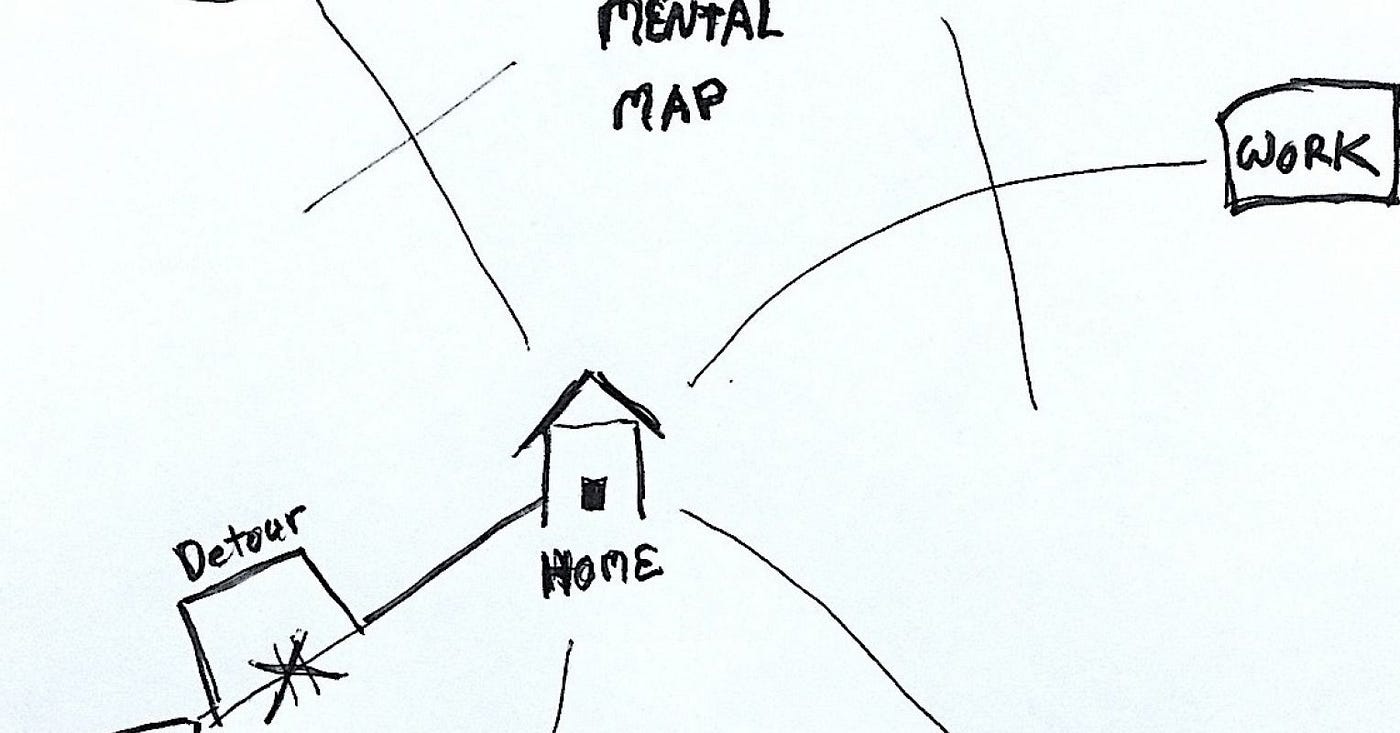 MENTAL
MAP
WORK
Detour
HOME